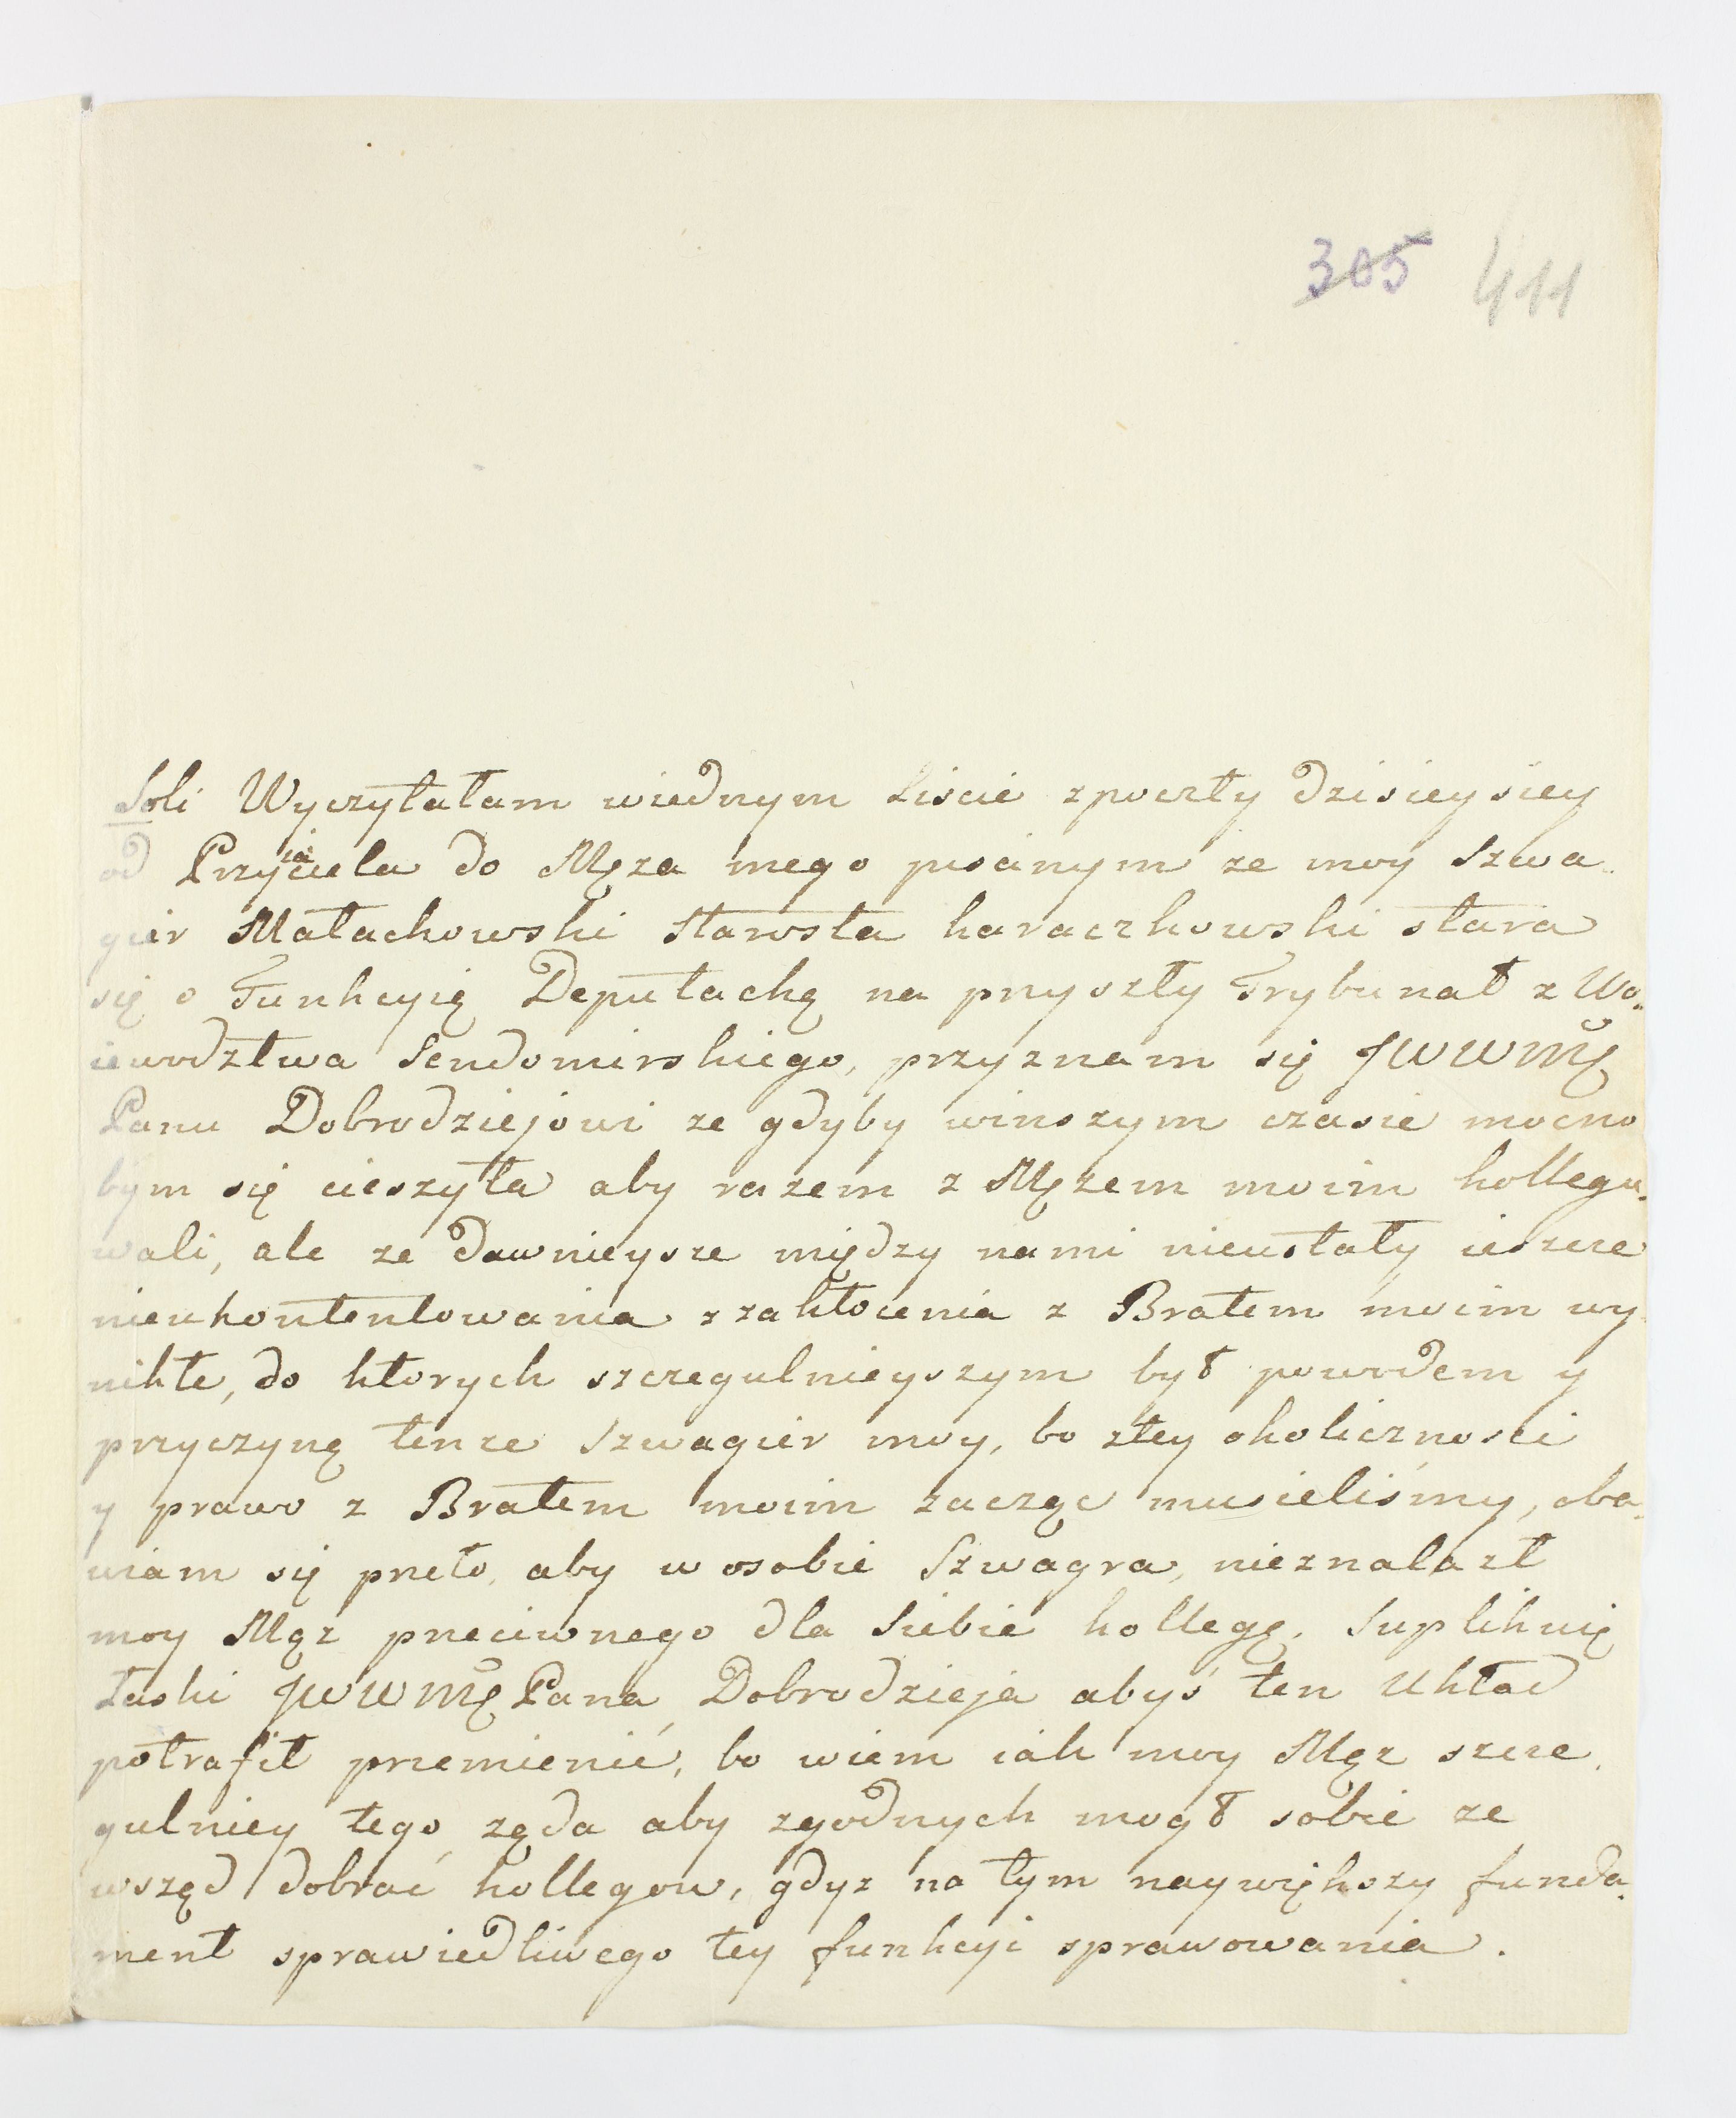 305 411
Soli Wyczytałam wiednym Liscie zpoczty dzisieysiey
od Przyiaciela do Męza mego pisanym ze moy Szwa-
gier Małachowski Starosta karaczkowski stara
się o Funkcyią Deputacką na przyszły Trybunał z Wo-
iewodztwa Sendomirskiego, przyznam się JWWMę
Panu Dobrodziejowi ze gdyby winszym czasie mocno
bym się cieszyła aby razem z Męzem moim kollegu-
wali, ale ze dawnieysze między nami nieustały ieszcze
nieukontentowania z zakłocenia z Bratem moim wy-
nikłe, do ktorych szczegulnieyszym był powodem y
przyczyną tenze Szwagier moy, bo ztey okolicznosci
y prawo z Bratem moim zacząc musieliśmy, oba-
wiam się przeto, aby w osobie Szwagra, nieznalazł
moy Mąz przeciwnego dla Siebie kollegę. Suplikuię
Łaski JWWMę Pana Dobrodzieja abyś ten Układ
potrafił przemienić, bo wiem iak moy Mąz szcze-
gulniey tego ząda aby zgodnych mogł sobie ze
wsząd dobrać kollegow, gdyz na tym naywiększy funda-
ment sprawiedliwego tey funkcyi sprawowania.